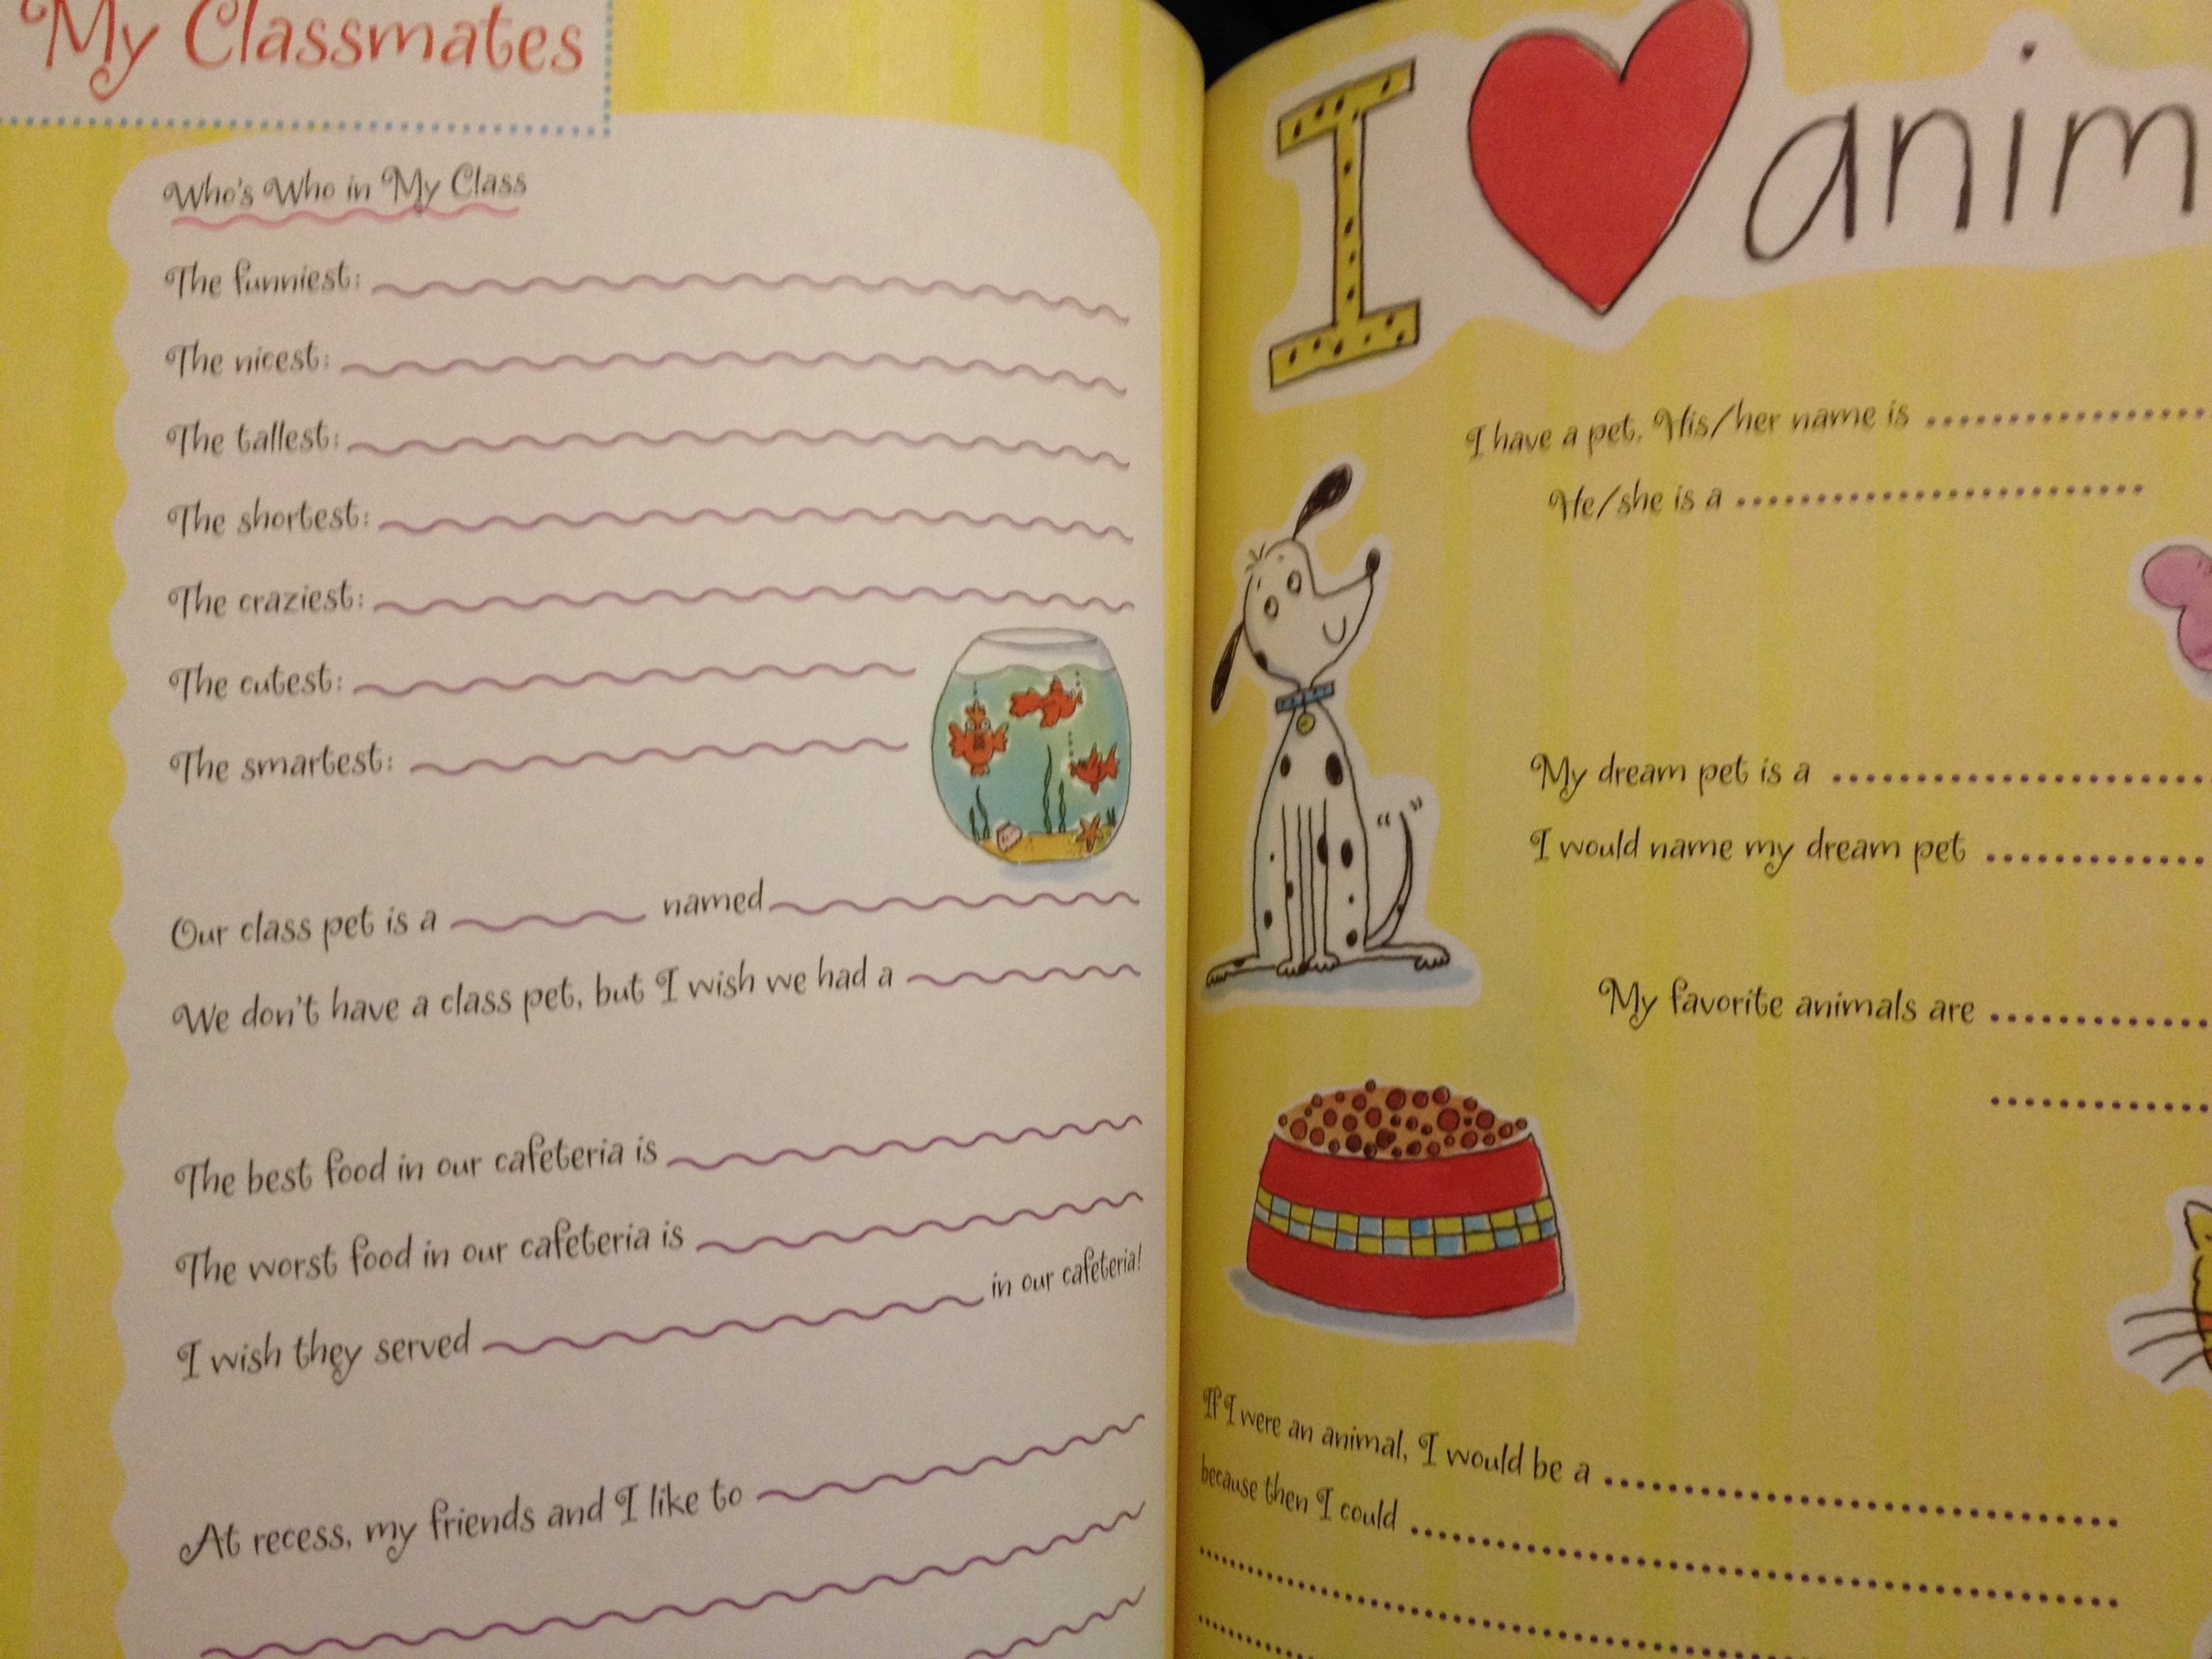 My Classmates
Who's Who in My Class
The funniest:
The nicest:
The tallest:
The shortest:
The craziest:
The cutest:
The smartest:
Our class pet is a named
We don't have a class pet, but I wish we had a
The best food in our cafeteria is
The worst food in our cafeteria is
I wish they served in our cafeteria!
At recess, my friends and I like to
I anim
I have a pet. His/her name is
He/she is a
My dream pet is a
I would name my dream pet
My favorite animals are
If I were an animal, I would be a
because then I could